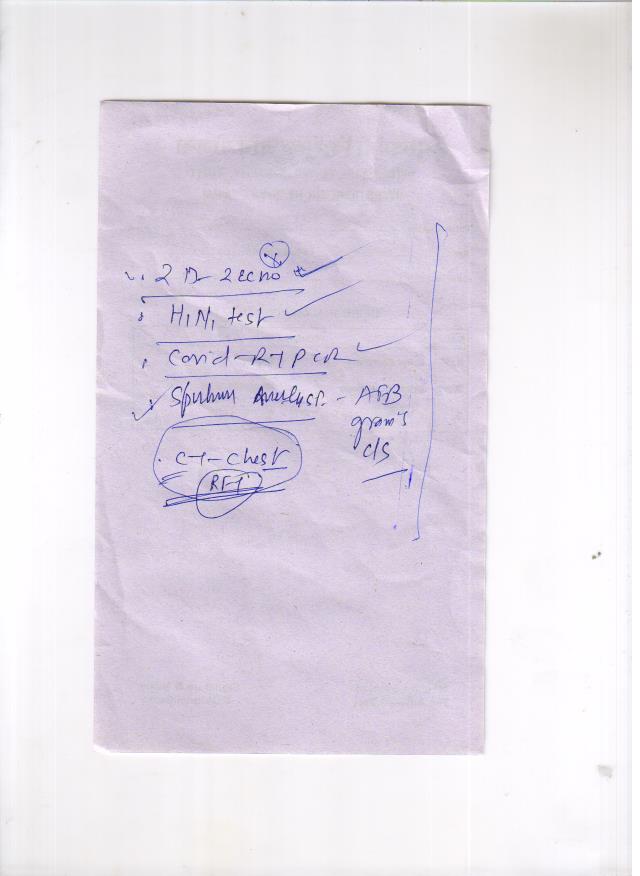 2 D-2echo
H1N1 test
Covid-RTPCR
Sputum Analysis - AFB
gram's
c/s
CT-Chest
RFT